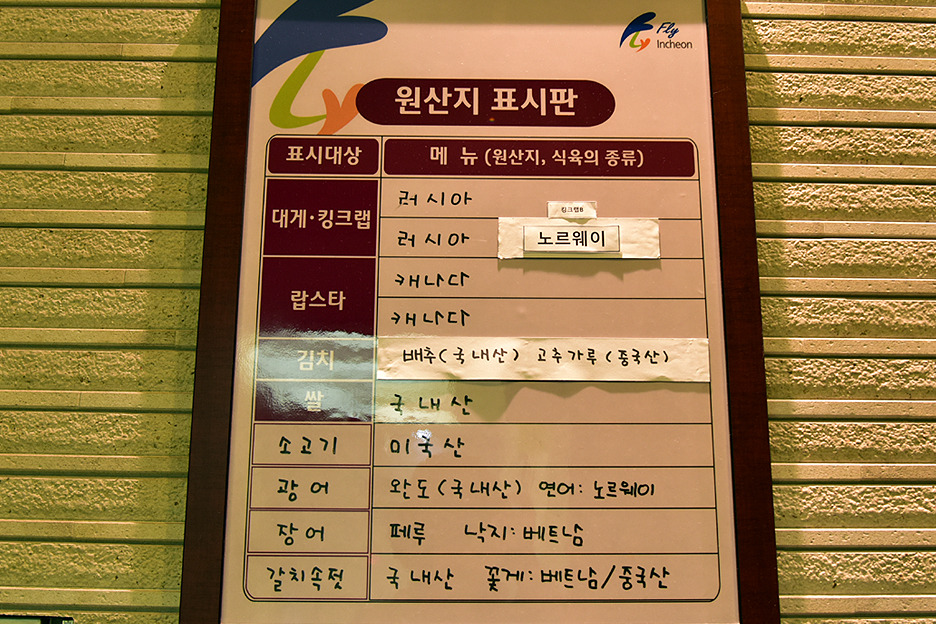 Fly
Incheon
Fly
원산지 표시판
표시대상 메 뉴 (원산지, 식육의 종류)
대게·킹크랩 러시아
킹크랩B
러시아 노르웨이
랍스타 캐나다
캐나다
김치 배추(국내산) 고추가루(중국산)
쌀 국내산
소고기 미국산
광어 완도(국내산) 연어: 노르웨이
장어 페루 낙지: 베트남
갈치속젓 국내산 꽃게: 베트남/중국산